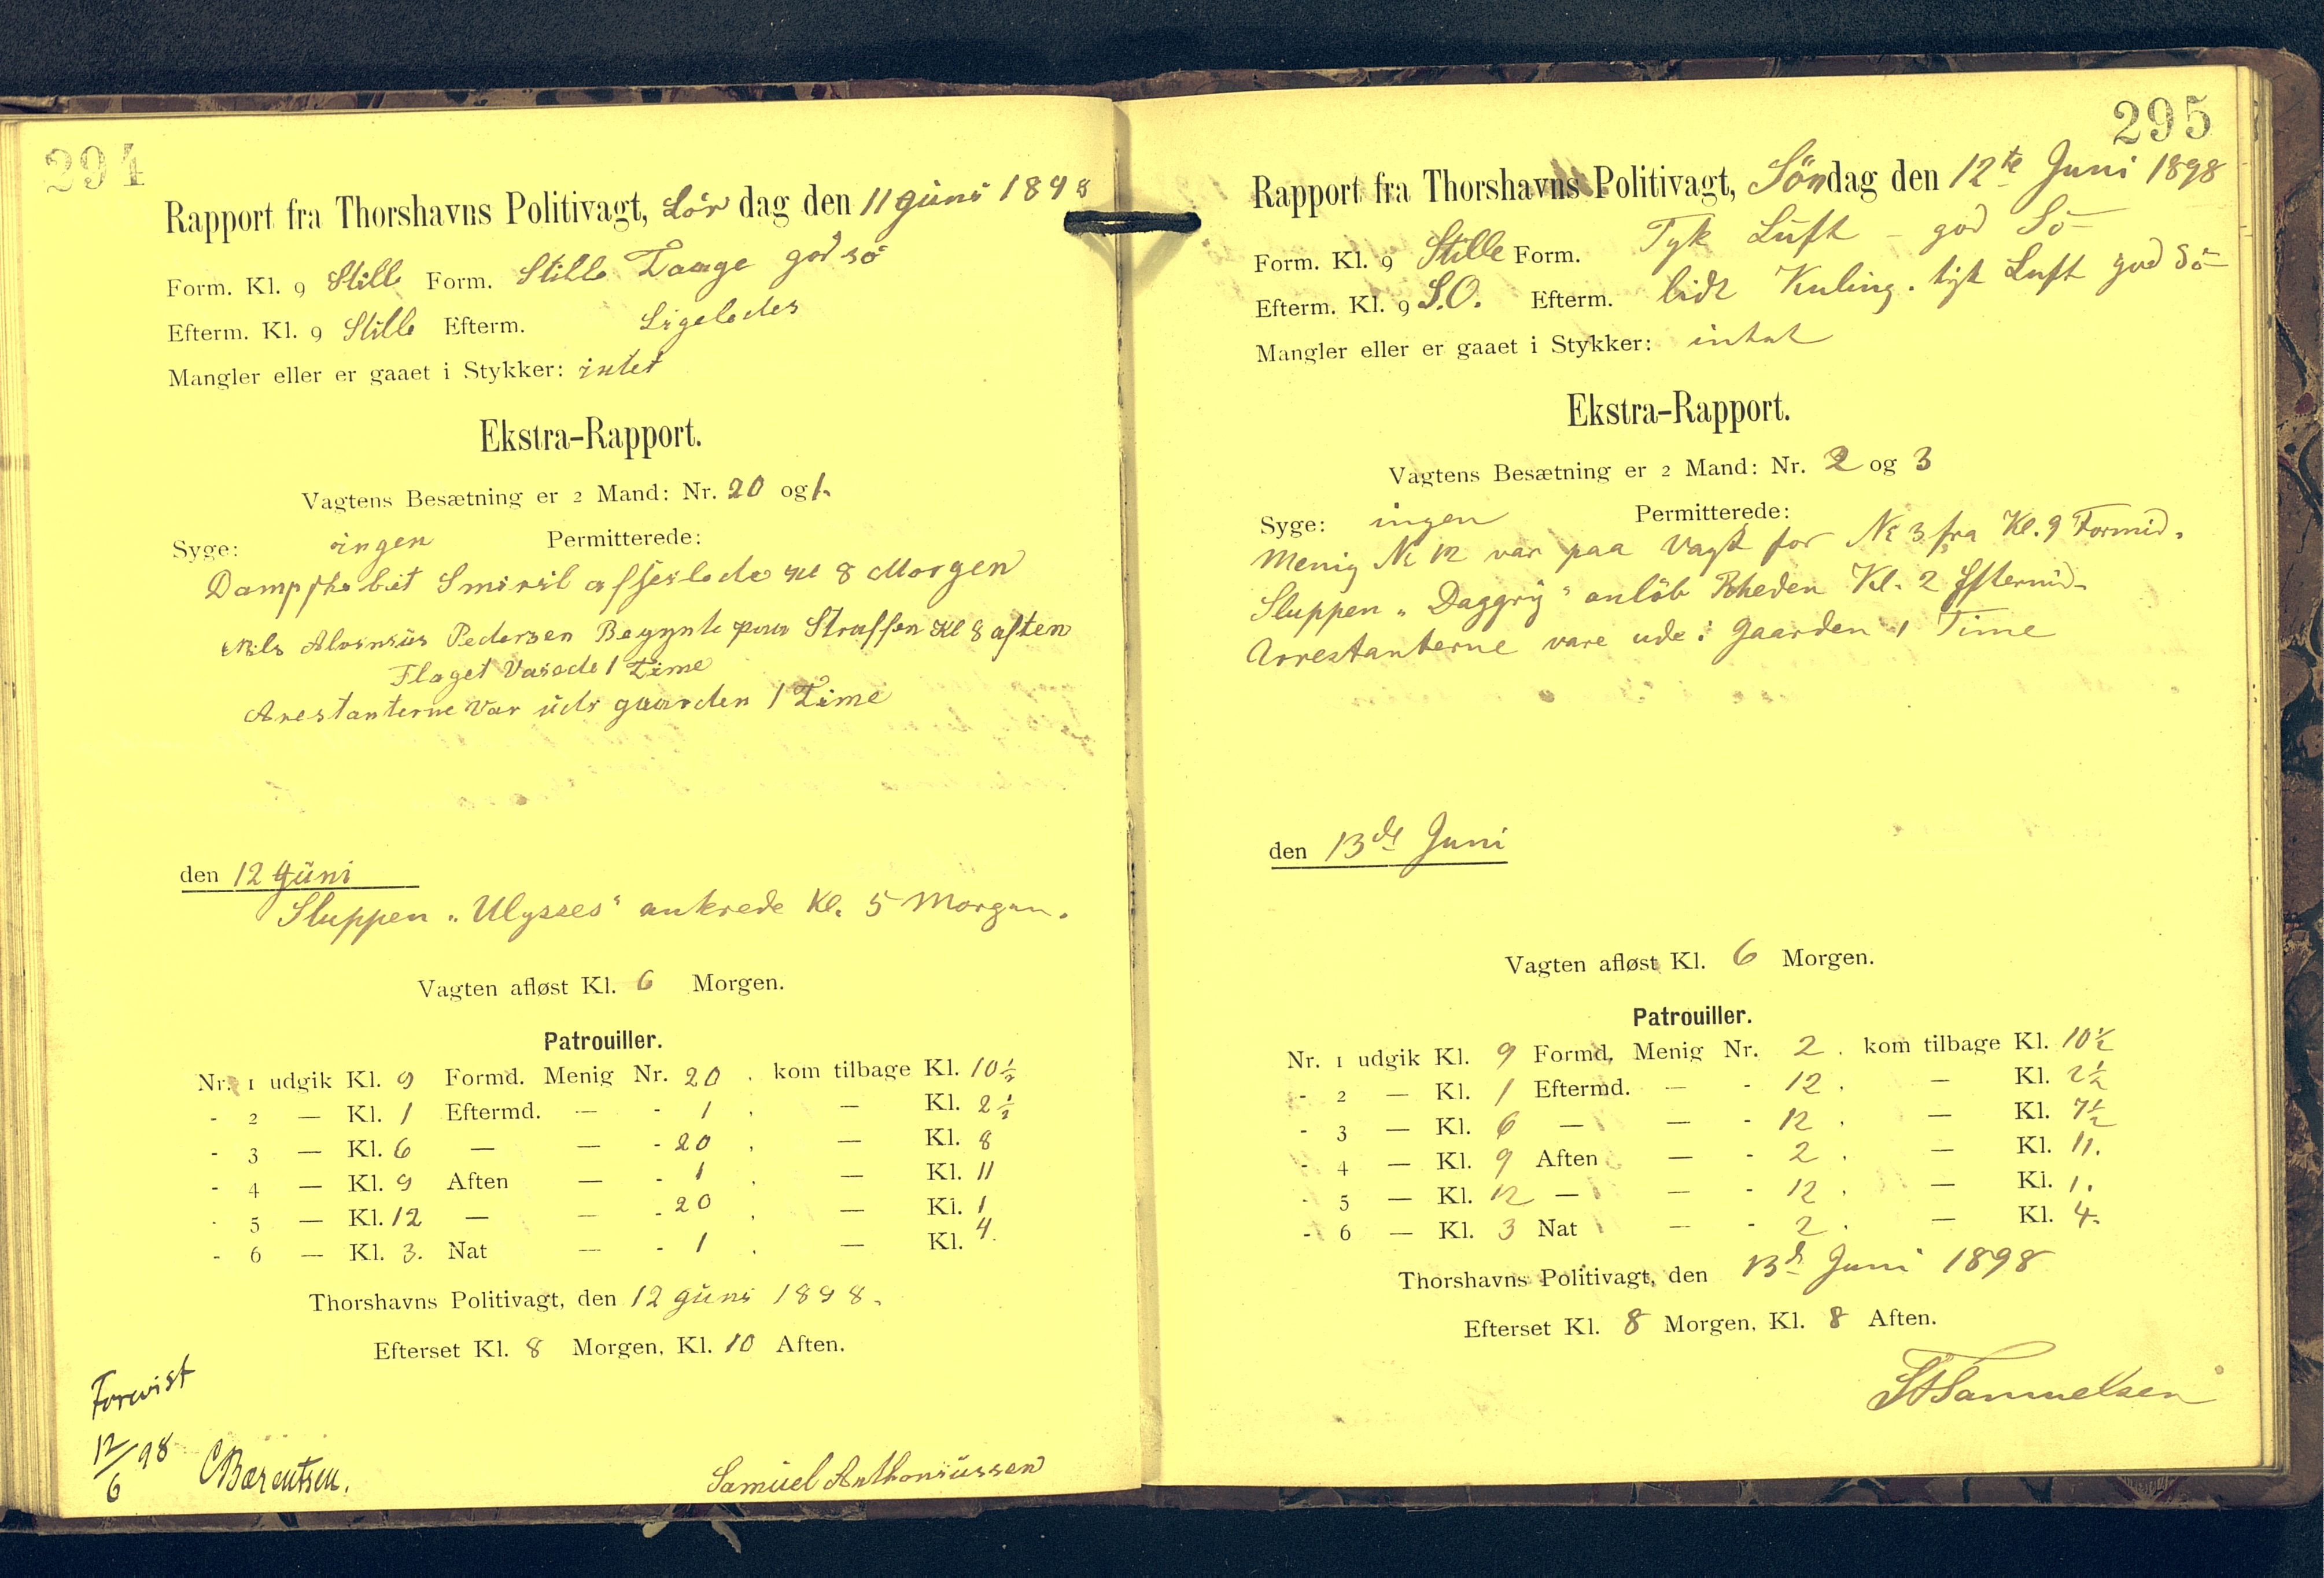 294
Rapport fra Thorshavns Politivagt, Lör dag den 11 Juni 1898
Form. Kl. 9 Stille Form. Stille Taage god sö
Efterm. Kl. 9 Stille Efterm. Ligeledes
Mangler eller er gaaet i Stykker: intet
Ekstra-Rapport.
Vagtens Besætning er 2 Mand: Nr. 20 og 1.
Syge: ingen Permitterede:
Dampskibet Smiril afseilede Kl 8 Morgen
Nils Pedersen Begynte paa Straffen Kl 8 aften
Flaget Vaiede 1 Time
Arestanterne Var udi gaarden 1 Time
den 12 Juni
Sluppen „Ulysses“ ankrede Kl. 5 Morgen.
Vagten afløst Kl. 6 Morgen.
Patrouiller.
Nr. 1 udgik Kl. 9 Formd. Menig Nr. 20 . kom tilbage Kl. 10 ½
- 2 — Kl. 1 Eftermd. — - 1 . — Kl. 2 ½
- 3 — Kl. 6 — — - 20 . — Kl. 8
- 4 — Kl. 9 Aften — - 1 . — Kl. 11
- 5 — Kl. 12 — — - 20 . — Kl. 1
- 6 — Kl. 3. Nat — - 1 . — Kl. 4.
Thorshavns Politivagt, den 12 Juni 1898.
Efterset Kl. 8 Morgen, Kl. 10 Aften.
Forevist
12/6 98 CBærentsen.
Samuel Anthoniussen
295
Rapport fra Thorshavns Politivagt, Söndag den 12te Juni 1898
Form. Kl. 9 Stille Form. Tyk Luft – god Sö
Efterm. Kl. 9 S.O. Efterm. lidt Kuling. tyk Luft god Sö
Mangler eller er gaaet i Stykker: intet
Ekstra-Rapport.
Vagtens Besætning er 2 Mand: Nr. 2 og 3
Syge: ingen Permitterede:
Menig Nr 12 var paa Vagt for Nr 3 fra Kl. 9 Formid.
Sluppen „Daggry“ anlöb Rheden Kl. 2 Eftermid.
Arrestanterne vare ude i Gaarden 1 Time
den 13de Juni
Vagten afløst Kl. 6 Morgen.
Patrouiller.
Nr. 1 udgik Kl. 9 Formd. Menig Nr. 2 . kom tilbage Kl. 10 ½
- 2 — Kl. 1 Eftermd. — - 12 . — Kl. 2 ½
- 3 — Kl. 6 — — - 12 . — Kl. 7 ½
- 4 — Kl. 9 Aften — - 2 . — Kl. 11.
- 5 — Kl. 12 — — - 12 . — Kl. 1.
- 6 — Kl. 3 Nat — - 2 . — Kl. 4.
Thorshavns Politivagt, den 13de Juni 1898
Efterset Kl. 8 Morgen, Kl. 8 Aften.
Samuelsen